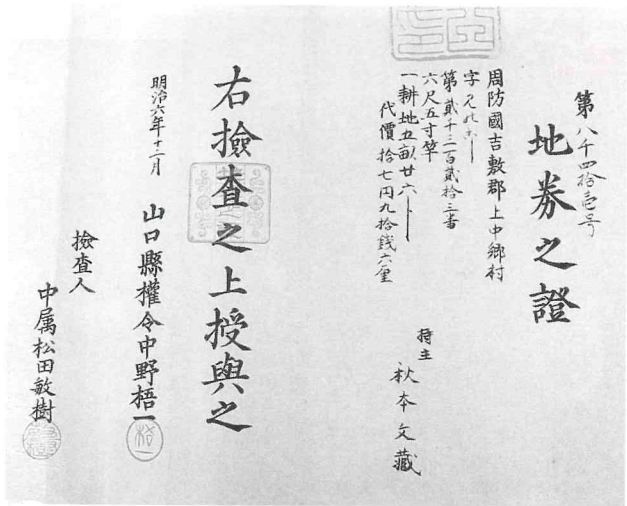 第八千四拾壱号
地券之證
周防國吉敷郡上中郷村
字
第貳千三百貳拾三番
六尺五寸竿
一耕地五畝廿六
代價拾七円九拾錢六厘
持主
秋本文藏
右撿査之上授與之
明治六年十二月
山口縣權令中野梧一
撿査人
中属松田敏樹